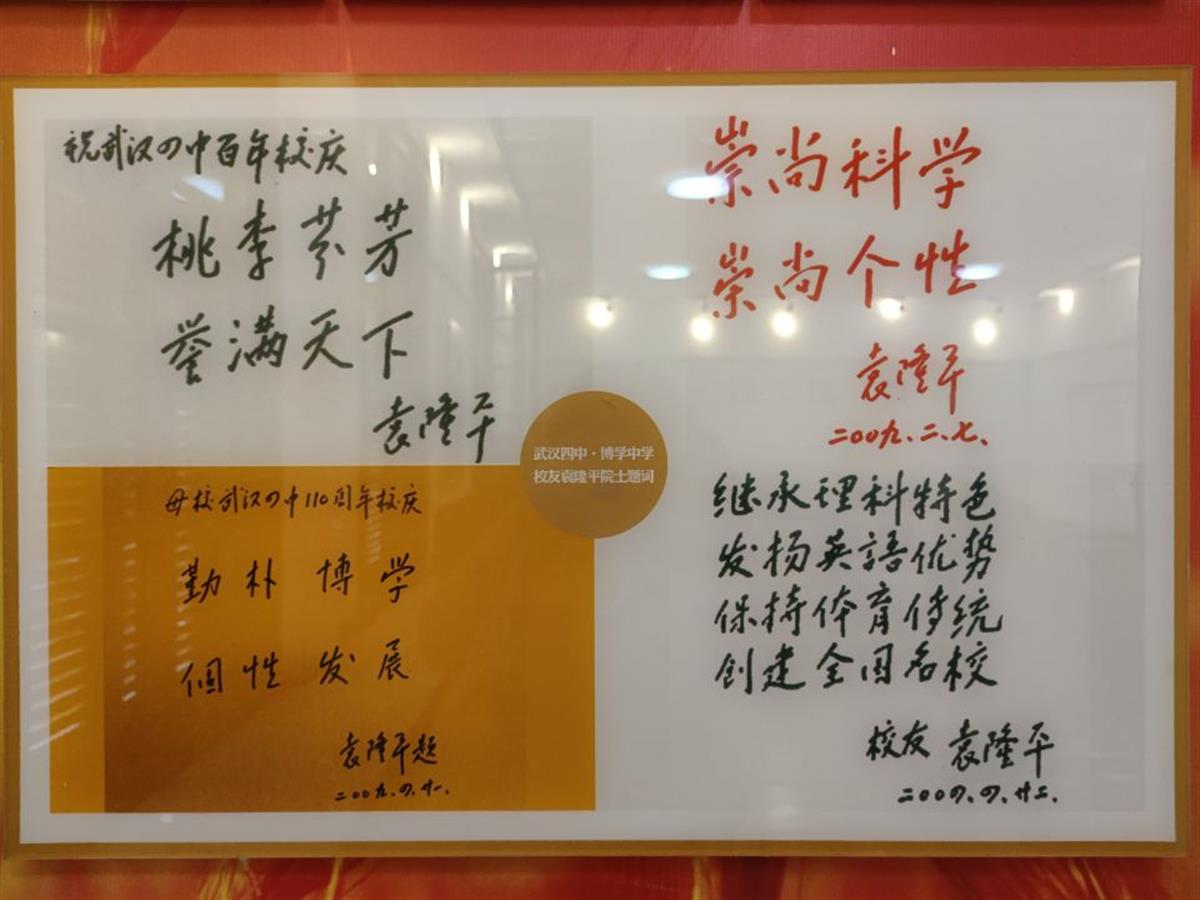 祝武汉四中百年校庆
桃李芬芳
誉满天下
袁隆平
崇尚科学
崇尚个性
袁隆平
二〇〇九.二.七.
武汉四中·博学中学
校友袁隆平院士题词
母校武汉四中110周年校庆
勤朴博学
個性发展
袁隆平题
二〇〇九.四.廿一.
继承理科特色
发扬英語优势
保持体育传统
创建全国名校
校友 袁隆平
二〇〇四.四.廿二.